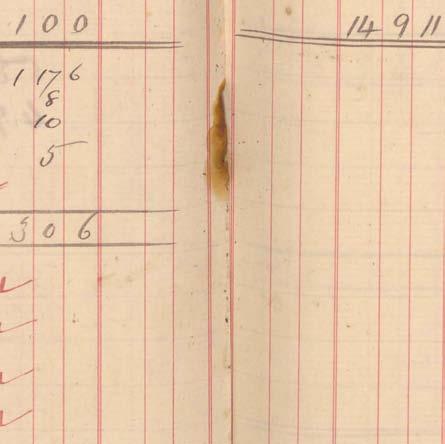 1 0 0
14 9 11
1 17 6
8
10
5
3 0 6